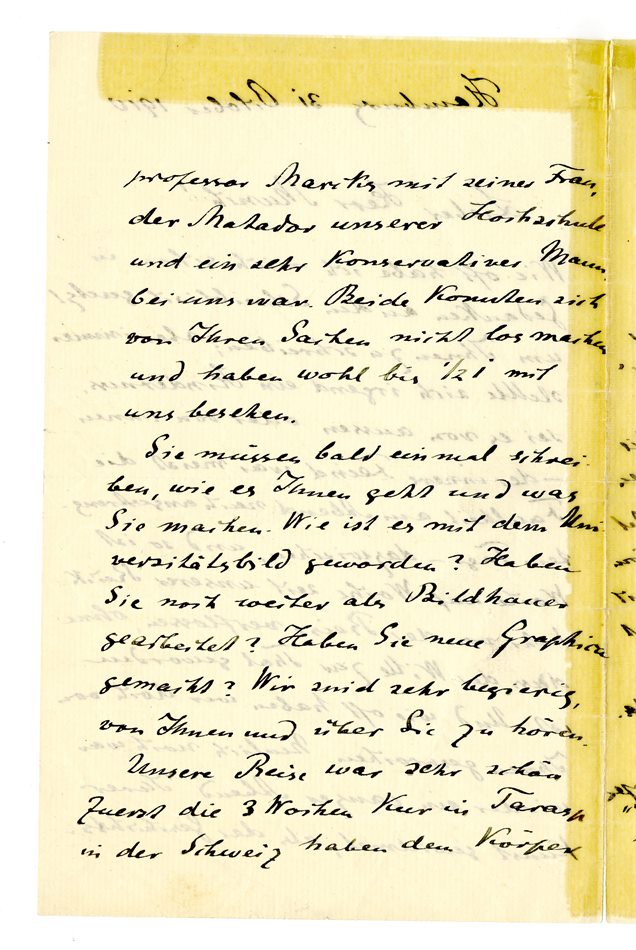 professor Marcks mit seiner Frau,
der Matador unserer Hochschule
und ein sehr konservativer Mann
bei uns war. Beide konnten sich
von Ihren Sachen nicht los machen
und haben wohl bis 1/2 1 mit
uns besehen.
Sie müssen bald einmal schrei-
ben, wie es Ihnen geht und was
Sie machen. Wie ist es mit dem Uni-
versitätsbild geworden? Haben
Sie noch weiter als Bildhauer
gearbeitet? Haben Sie neue Graphica
gemacht? Wir sind sehr begierig,
von Ihnen und über Sie zu hören.
Unsere Reise war sehr schön
Zuerst die 3 Wochen Kur in Tarasp
in der Schweiz haben den Körper